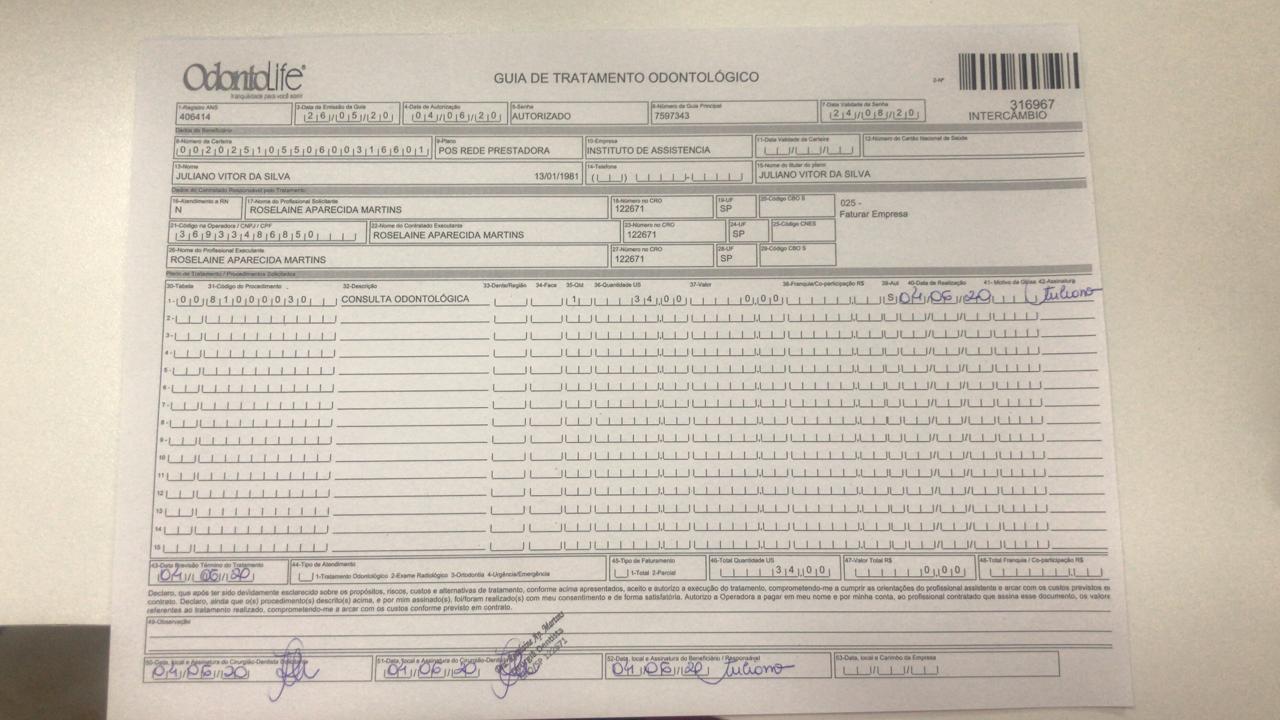 OdontoLife®
tranquilidade para você sorrir
GUIA DE TRATAMENTO ODONTOLÓGICO
2-Nº
316967
INTERCÂMBIO
1-Registro ANS
406414
3-Data da Emissão da Guia
26/05/20
4-Data de Autorização
04/06/20
5-Senha
AUTORIZADO
6-Número da Guia Principal
7597343
7-Data Validade da Senha
24/08/20
Dados do Beneficiário
8-Número da Carteira
00202510550600316601
9-Plano
POS REDE PRESTADORA
10-Empresa
INSTITUTO DE ASSISTENCIA
11-Data Validade da Carteira
12-Número do Cartão Nacional de Saúde
13-Nome
JULIANO VITOR DA SILVA 13/01/1981
14-Telefone
15-Nome do titular do plano
JULIANO VITOR DA SILVA
Dados do Contratado Responsável pelo Tratamento
16-Atendimento a RN
N
17-Nome do Profissional Solicitante
ROSELAINE APARECIDA MARTINS
18-Número no CRO
122671
19-UF
SP
20-Código CBO S
025 -
Faturar Empresa
21-Código na Operadora / CNPJ / CPF
36933486850
22-Nome do Contratado Executante
ROSELAINE APARECIDA MARTINS
23-Número no CRO
122671
24-UF
SP
25-Código CNES
26-Nome do Profissional Executante
ROSELAINE APARECIDA MARTINS
27-Número no CRO
122671
28-UF
SP
29-Código CBO S
Plano de Tratamento / Procedimentos Solicitados
30-Tabela 31-Código do Procedimento 32-Descrição 33-Dente/Região 34-Face 35-Qtd 36-Quantidade US 37-Valor 38-Franquia/Co-participação R$ 39-Aut 40-Data de Realização 41- Motivo da Glosa 42-Assinatura
1- 00 81000030 CONSULTA ODONTOLÓGICA 1 34,00 0,00 S 04/06/20 Juliano
2-
3-
4-
5-
6-
7-
8-
9-
10
11
12
13
14
15
43-Data Previsão Término do Tratamento
04/06/20
44-Tipo de Atendimento
1-Tratamento Odontológico 2-Exame Radiológico 3-Ortodontia 4-Urgência/Emergência
45-Tipo de Faturamento
1-Total 2-Parcial
46-Total Quantidade US
34,00
47-Valor Total R$
0,00
48-Total Franquia / Co-participação R$
Declaro, que após ter sido devidamente esclarecido sobre os propósitos, riscos, custos e alternativas de tratamento, conforme acima apresentados, aceito e autorizo a execução do tratamento, comprometendo-me a cumprir as orientações do profissional assistente e arcar com os custos previstos
contrato. Declaro, ainda que o(s) procedimento(s) descrito(s) acima, e por mim assinado(s), foi/foram realizado(s) com meu consentimento e de forma satisfatória. Autorizo a Operadora a pagar em meu nome e por minha conta, ao profissional contratado que assina esse documento, os valore
referentes ao tratamento realizado, comprometendo-me a arcar com os custos conforme previsto em contrato.
49-Observação
50-Data, local e Assinatura do Cirurgião-Dentista
04/06/20
51-Data, local e Assinatura do Cirurgião-Dentista
04/06/20
Ap. Martins
Dentista
122671
52-Data, local e Assinatura do Beneficiário / Responsável
04/06/20 Juliano
53-Data, local e Carimbo da Empresa